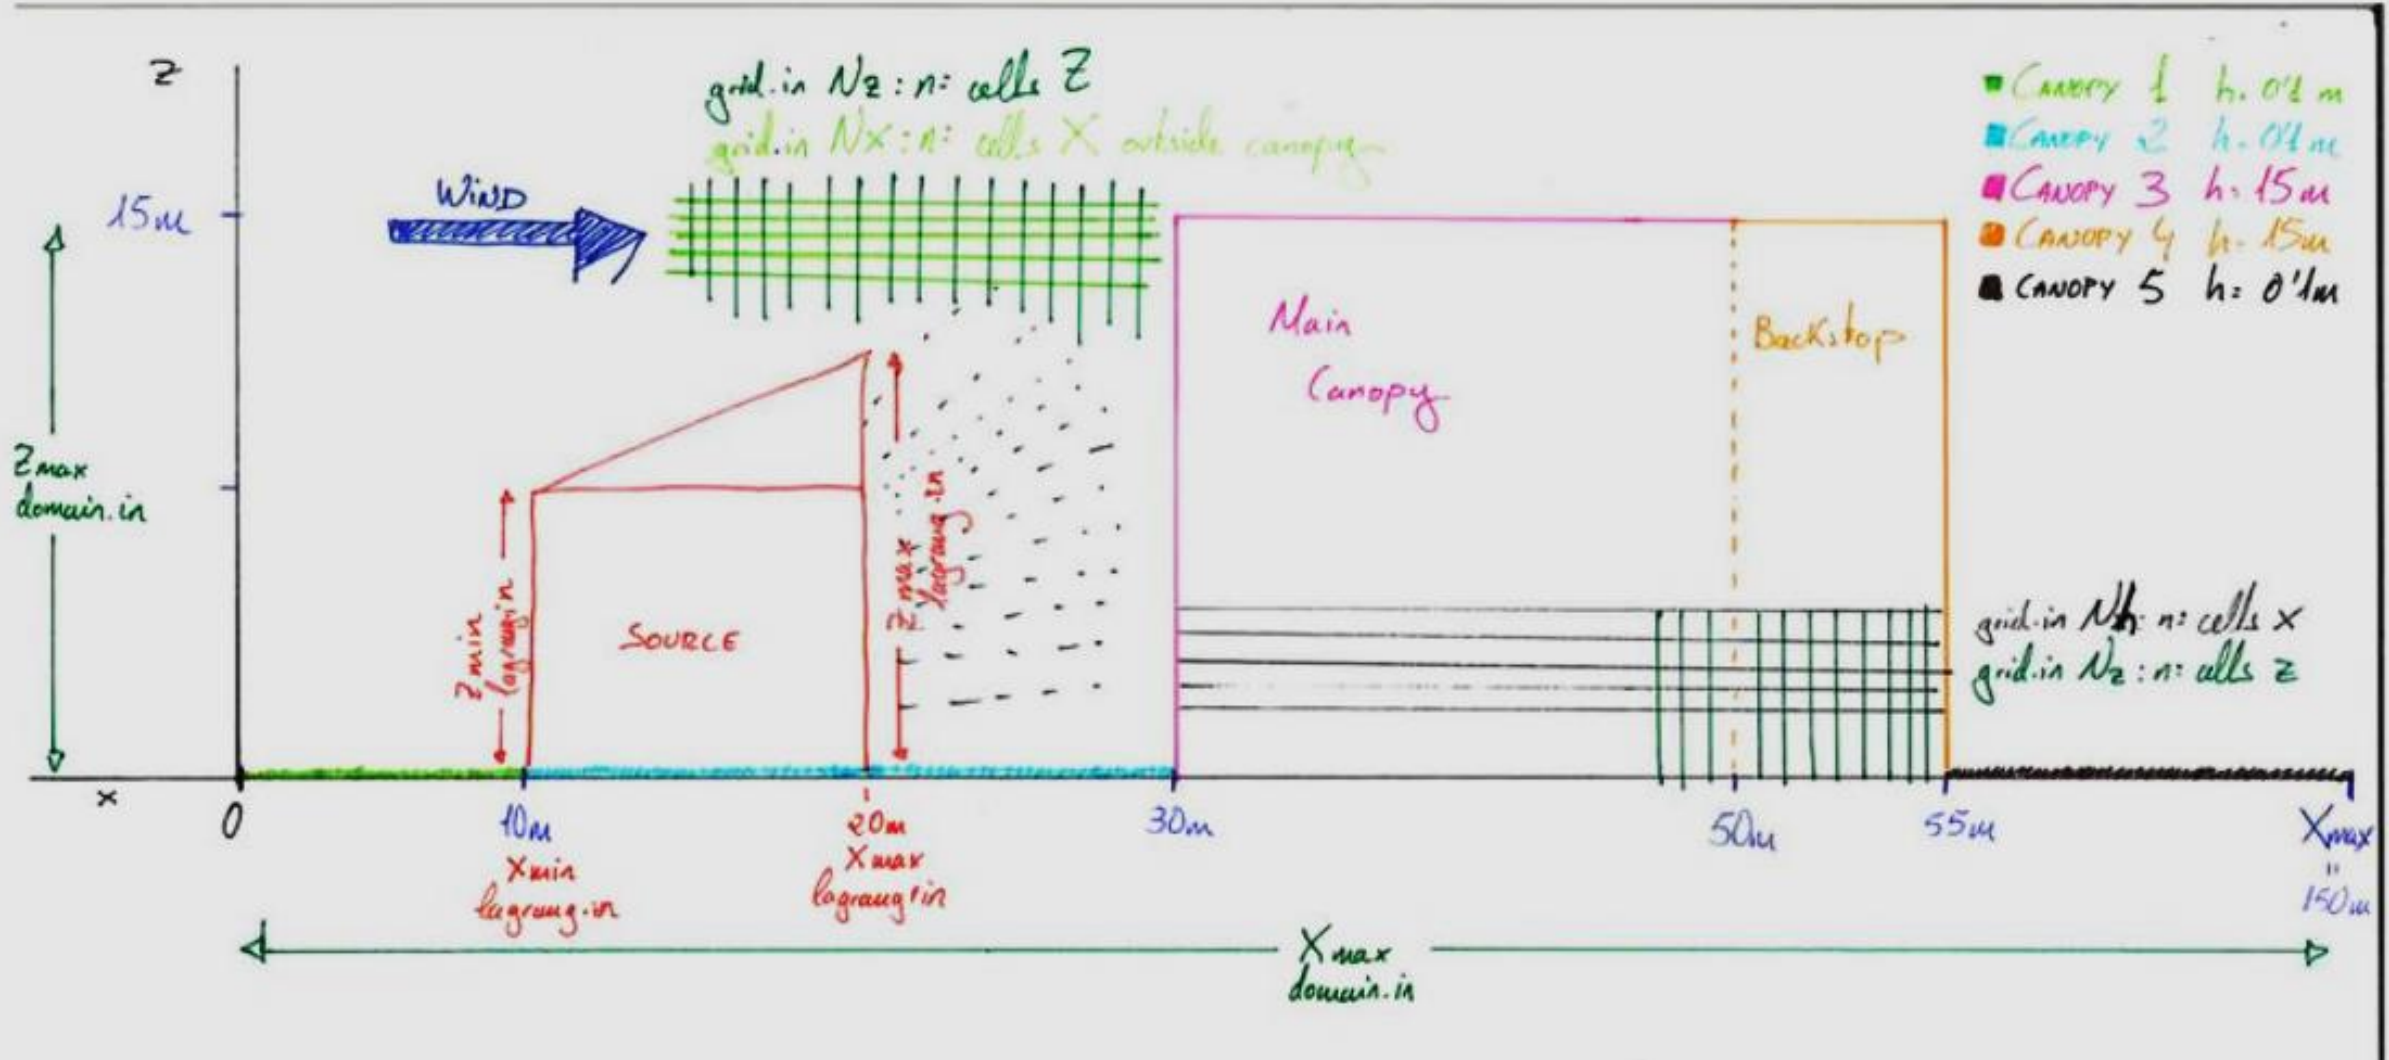 Z
grid.in Nz : n: cells Z
grid.in Nx : n: cells X outside canopy
CANOPY 1 h. 0'1 m
CANOPY 2 h. 0'1 m
CANOPY 3 h: 15m
CANOPY 4 h- 15m
CANOPY 5 h: 0'1m
WIND
15m
Main
Canopy
Backstop
Zmax
domain.in
Zmin
lagrang.in
SOURCE
Zmax
lagrang.in
grid.in Nh: n: cells x
grid.in Nz : n: cells z
x
0
10m
20m
30m
50m
55m
Xmax
"
150m
Xmin
lagrang.in
Xmax
lagrang.in
Xmax
domain.in